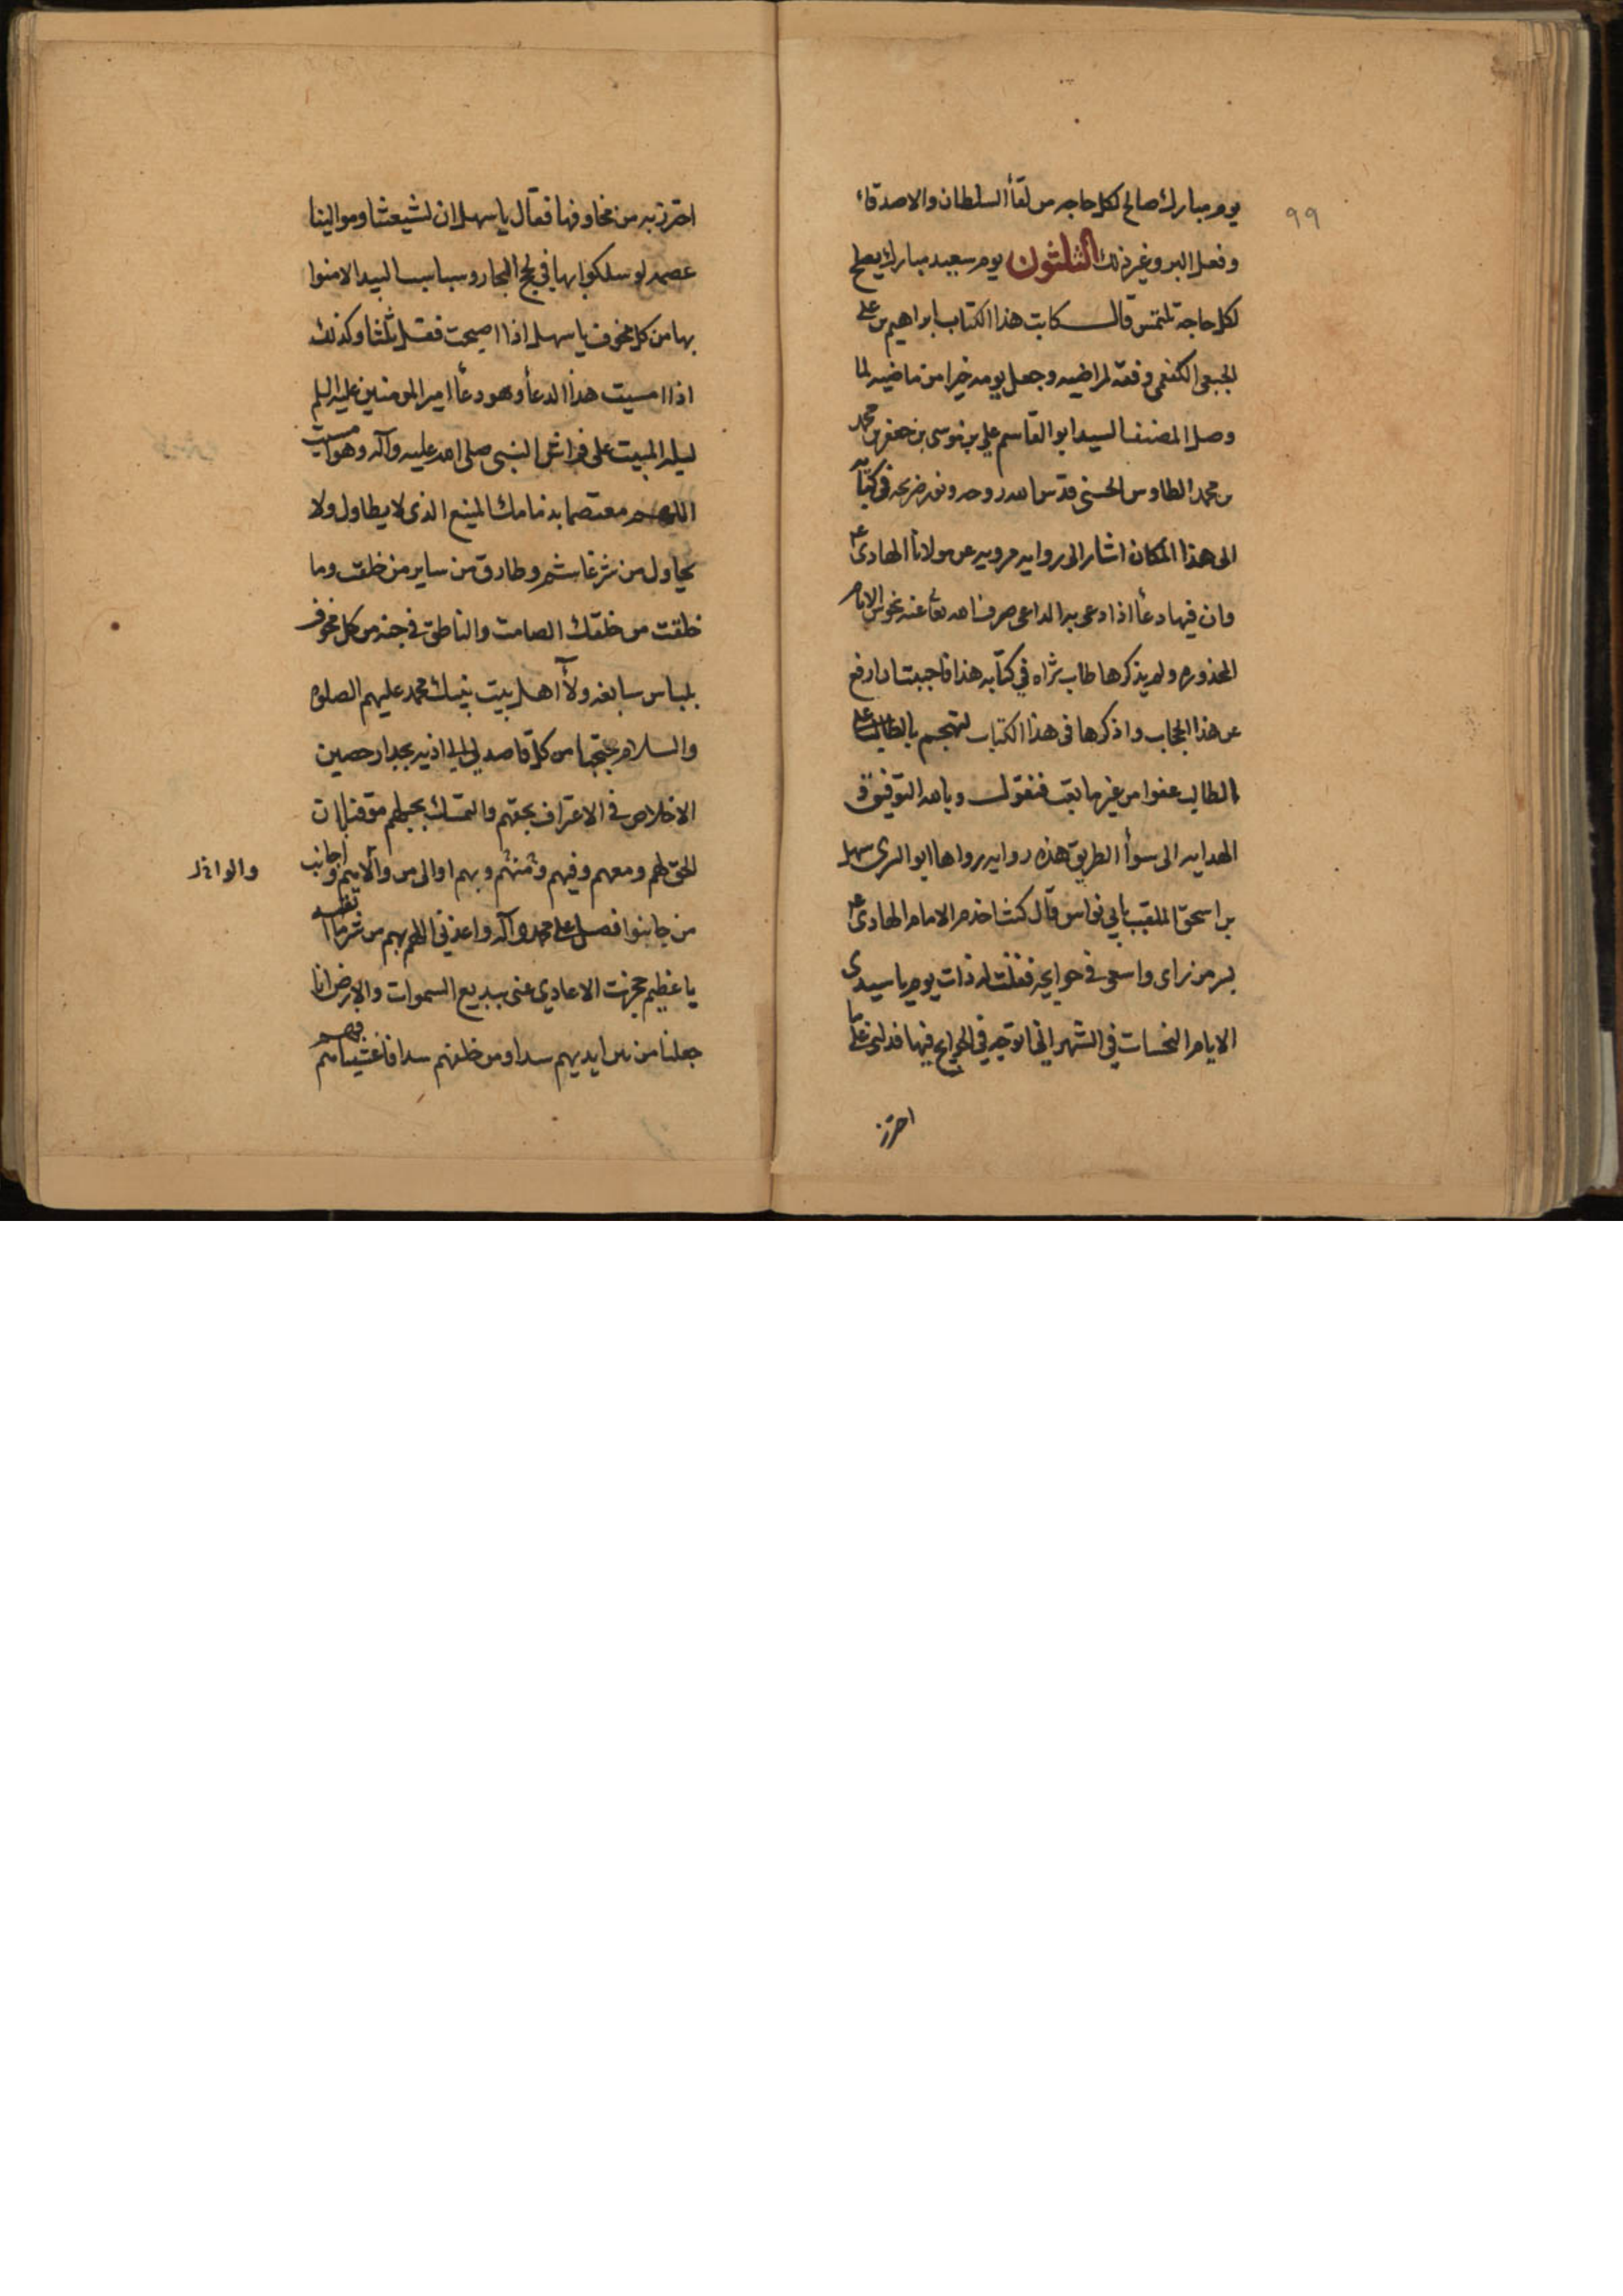 ٩٩
يوم مبارك صالح لكل حاجه من لقأ السلطان والاصدقاء
وفعل البر وغير ذلك الثلثون يوم سعيد مبارك يصلح
لكل حاجة تلتمس قال كاتب هذا الكتاب ابراهيم بن علي
الجبعي الكفعمي وفقه لمراضيه وجعل يومه خيرا من ماضيه لما
وصل المصنف السيد ابو القاسم علي بن موسى بن جعفر بن محمد
بن محمد الطاوس الحسني قدس الله روحه ونور ضريحه في كتابه
الى هذا المكان اشار الى روايه مرويه عن مولانا الهادى ع
وان فيها دعأ اذا دعى به الداعى صرف الله تعا عنه نحوس الايام
المحذوره ولم يذكرها طاب ثراه في كتابه هذا فاجببت ان ارفع
عن هذا الحجاب واذكرها فى هذا الكتاب
الطالب عفوا من غيرها تعب فنقول وبالله التوفيق و
الهدايه الى سوأ الطريق هذه روايه رواها ابو السرى سهل
بن اسحق الملقب بابي نواس قال كنت اخدم الامام الهادى ع
بسر من راى واسعى في حوايجه فقلت له ذات يوم يا سيدى
الايام النحسات في الشهر اني اتوجه في الحوايج فيها فدلني على ما
احترز
احترز به من مخاوفها فقال يا سهل ان لشيعتنا وموالينا
عصمه لو سلكوا بها في لجج البحار وسباسب البيد الامنوا
بها من كل مخوف يا سهل اذا اصبحت فقل ثلثا وكذلك
اذا امسيت هذا الدعأ وهو دعأ امير المومنين عليه السلم
ليله المبيت على فراش النبي صلى الله عليه وآله وهو امسيت
اللهم معتصما بذمامك المنيع الذى لا يطاول ولا
يحاول من شر غاشم وطارق من ساير من خلقت وما
خلقت من خلقك الصامت والناطق في جنه من كل مخوف
بلباس سابغه ولأ اهل بيت نبيك محمد عليهم الصلوه
والسلام محتجبا من كل قاصد لي الى اذيه بجدار حصين
الاخلاص في الاعتراف بحقهم والتمسك بحبلهم موقنا ان
الحق لهم ومعهم وفيهم ومنهم وبهم اوالى من والوا واجانب
من جانبوا فصل على محمد وآله واعذني اللهم بهم من شر ما اتقيه
يا عظيم حجزت الاعادي عنى ببديع السموات والارض انا
جعلنا من بين ايديهم سدا ومن خلفهم سدا فاغشيناهم فهم